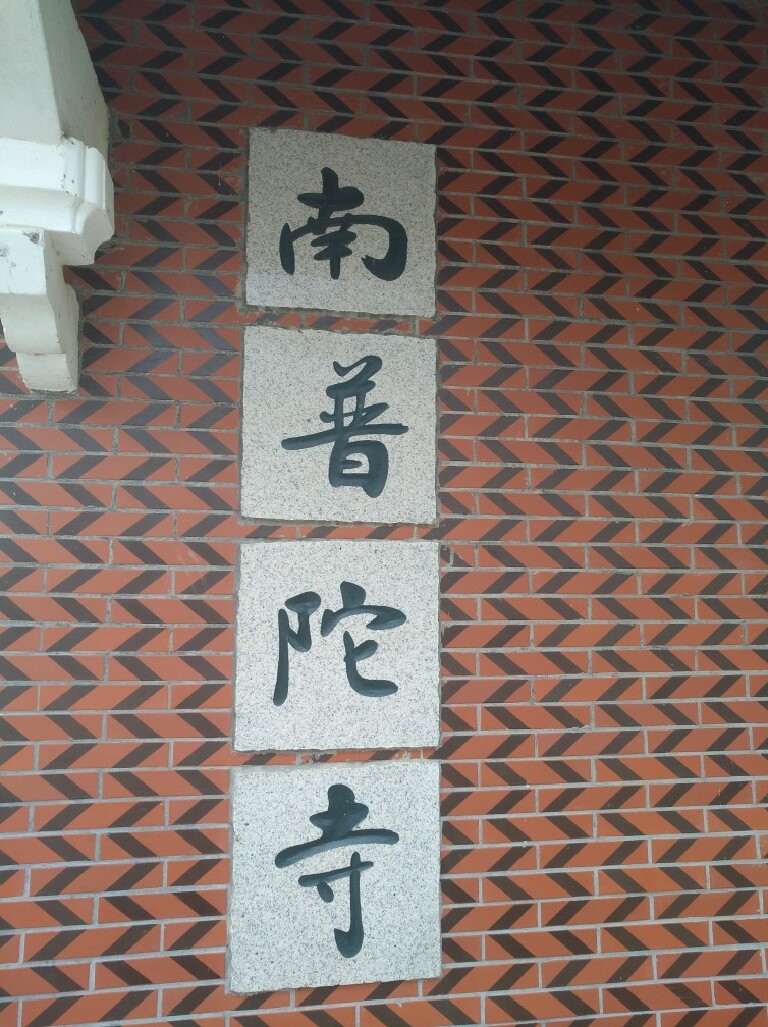 南普陀寺